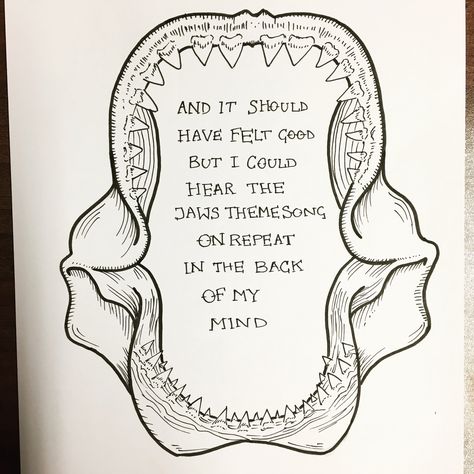 AND IT SHOULD
HAVE FELT GOOD
BUT I COULD
HEAR THE
JAWS THEMESONG
ON REPEAT
IN THE BACK
OF MY
MIND